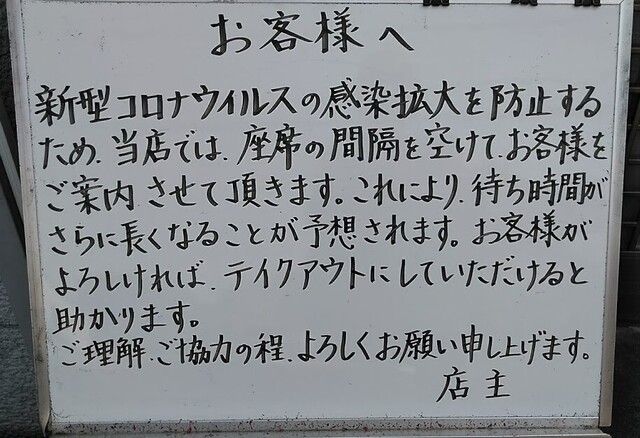 お客様へ
新型コロナウイルスの感染拡大を防止する
ため、当店では、座席の間隔を空けて、お客様を
ご案内させて頂きます。これにより、待ち時間が
さらに長くなることが予想されます。お客様が
よろしければ、テイクアウトにしていただけると
助かります。
ご理解、ご協力の程、よろしくお願い申し上げます。
店主